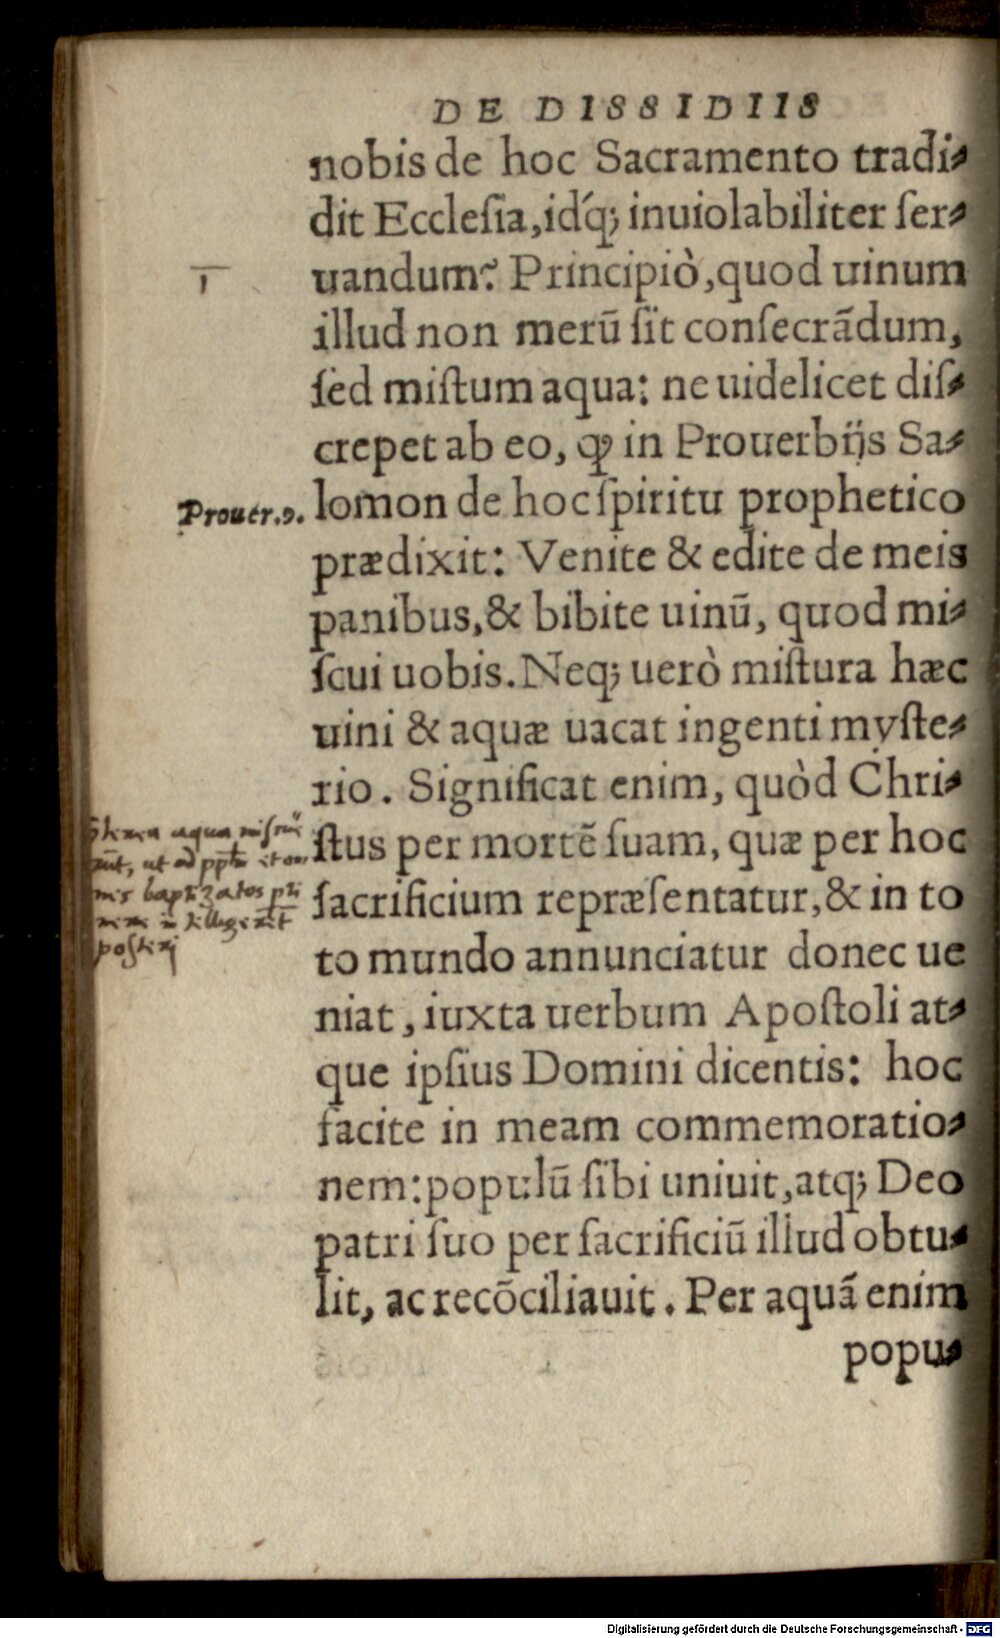 DE DISSIDIIS
nobis de hoc Sacramento tradi⸗
dit Eccleſia, idq́; inuiolabiliter ſer⸗
uandum? Principiò, quod uinum
1
illud non merū ſit conſecrādum,
ſed miſtum aqua: ne uidelicet diſ⸗
crepet ab eo, ꝙ in Prouerbijs Sa⸗
Prouer.9.
lomon de hoc ſpiritu prophetico
prædixit: Venite & edite de meis
panibus, & bibite uinū, quod mi⸗
ſcui uobis. Neq; uerò miſtura hæc
uini & aquæ uacat ingenti myſte⸗
rio. Significat enim, quòd Chri⸗
ſtus per mortē ſuam, quæ per hoc
ſacrificium repræſentatur, & in to
to mundo annunciatur donec ue
niat, iuxta uerbum Apoſtoli at⸗
que ipſius Domini dicentis: hoc
facite in meam commemoratio⸗
nem: populū ſibi uniuit, atq; Deo
patri ſuo per ſacrificiū illud obtu⸗
lit, ac recōciliauit. Per aquā enim
popu⸗
aqua
ut ad
baptizatos
Digitalisierung gefördert durch die Deutsche Forschungsgemeinschaft - DFG